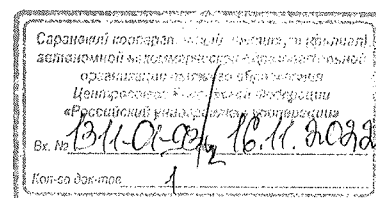 Саранский кооперативный институт (филиал)
автономной некоммерческой образовательной
организации высшего образования
Центросоюза Российской Федерации
«Российский университет кооперации»
Вх. № 1311-01-93/2 16.11.2022
Кол-во док-тов 1